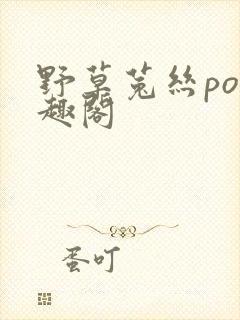 野草菟絲po
趣閣
蛋叮